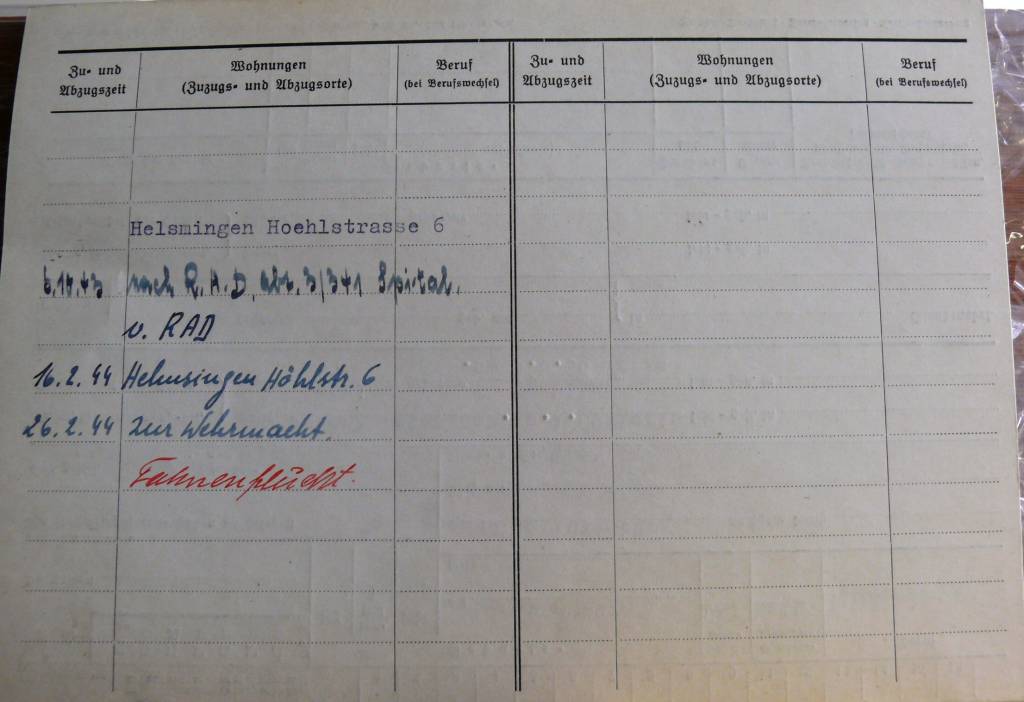 Zu- und Abzugszeit
Wohnungen
(Zuzugs- und Abzugsorte)
Beruf
(bei Berufswechsel)
Zu- und Abzugszeit
Wohnungen
(Zuzugs- und Abzugsorte)
Beruf
(bei Berufswechsel)
Helsmingen Hoehlstrasse 6
nach R.A.D. abt. 3/341 Spital.
v. RAD
16.2.44 Helmsingen Höhlstr. 6
26.2.44 Zur Wehrmacht.
Fahnenflucht.